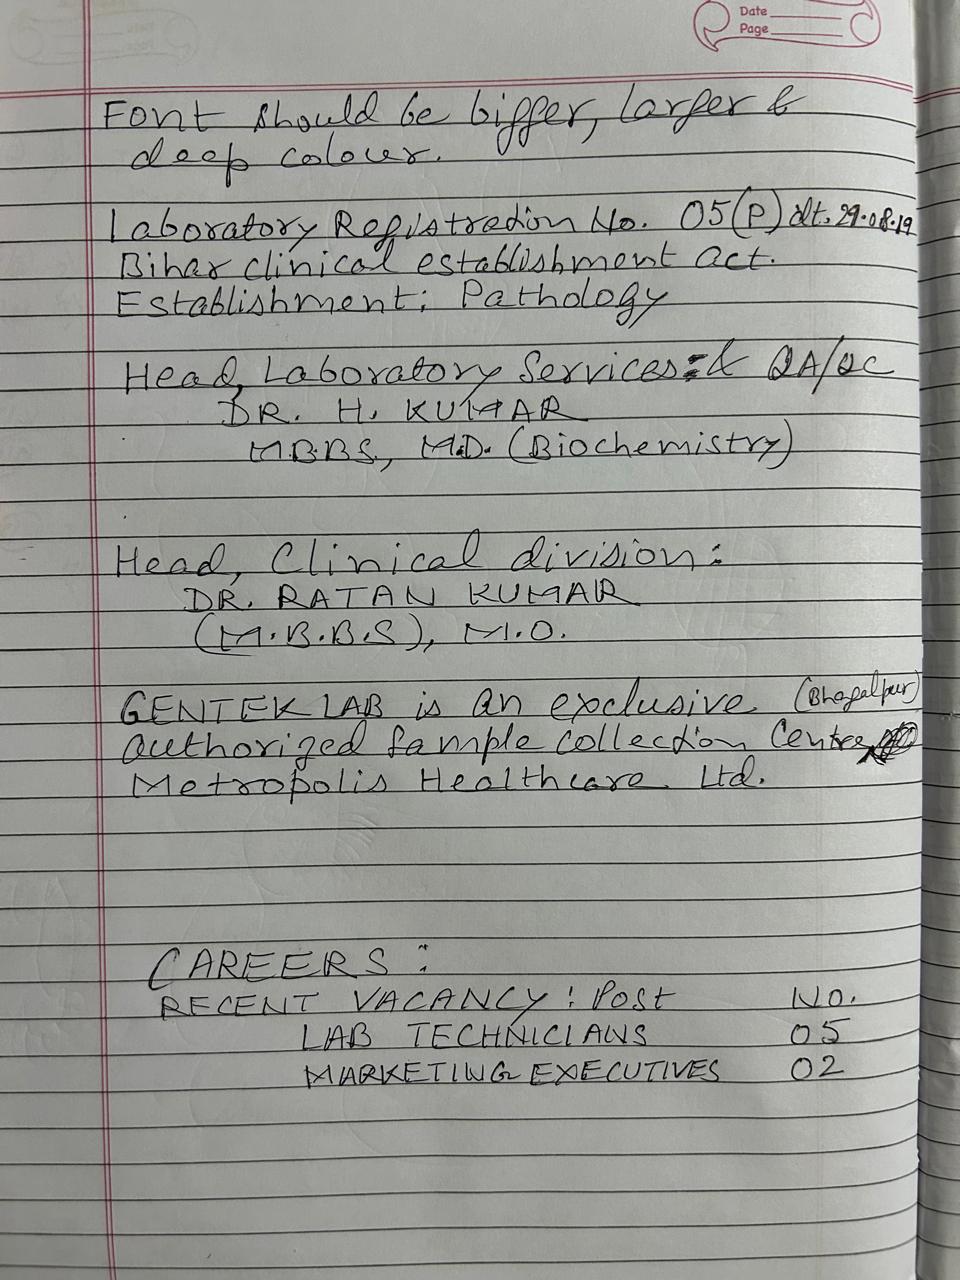 Date
Page
Font should be bigger, larger &
deep colour.
Laboratory Registration No. 05(P) dt. 29.08.19
Bihar clinical establishment act.
Establishment: Pathology
Head, Laboratory Services: & QA/QC
DR. H. KUMAR
M.B.B.S., M.D. (Biochemistry)
Head, Clinical division:
DR. RATAN KUMAR
(M.B.B.S), M.O.
GENTEK LAB is an exclusive (Bhagalpur)
authorized Sample collection Centre
Metropolis Healthcare Ltd.
CAREERS:
RECENT VACANCY: Post No.
LAB TECHNICIANS 05
MARKETING EXECUTIVES 02